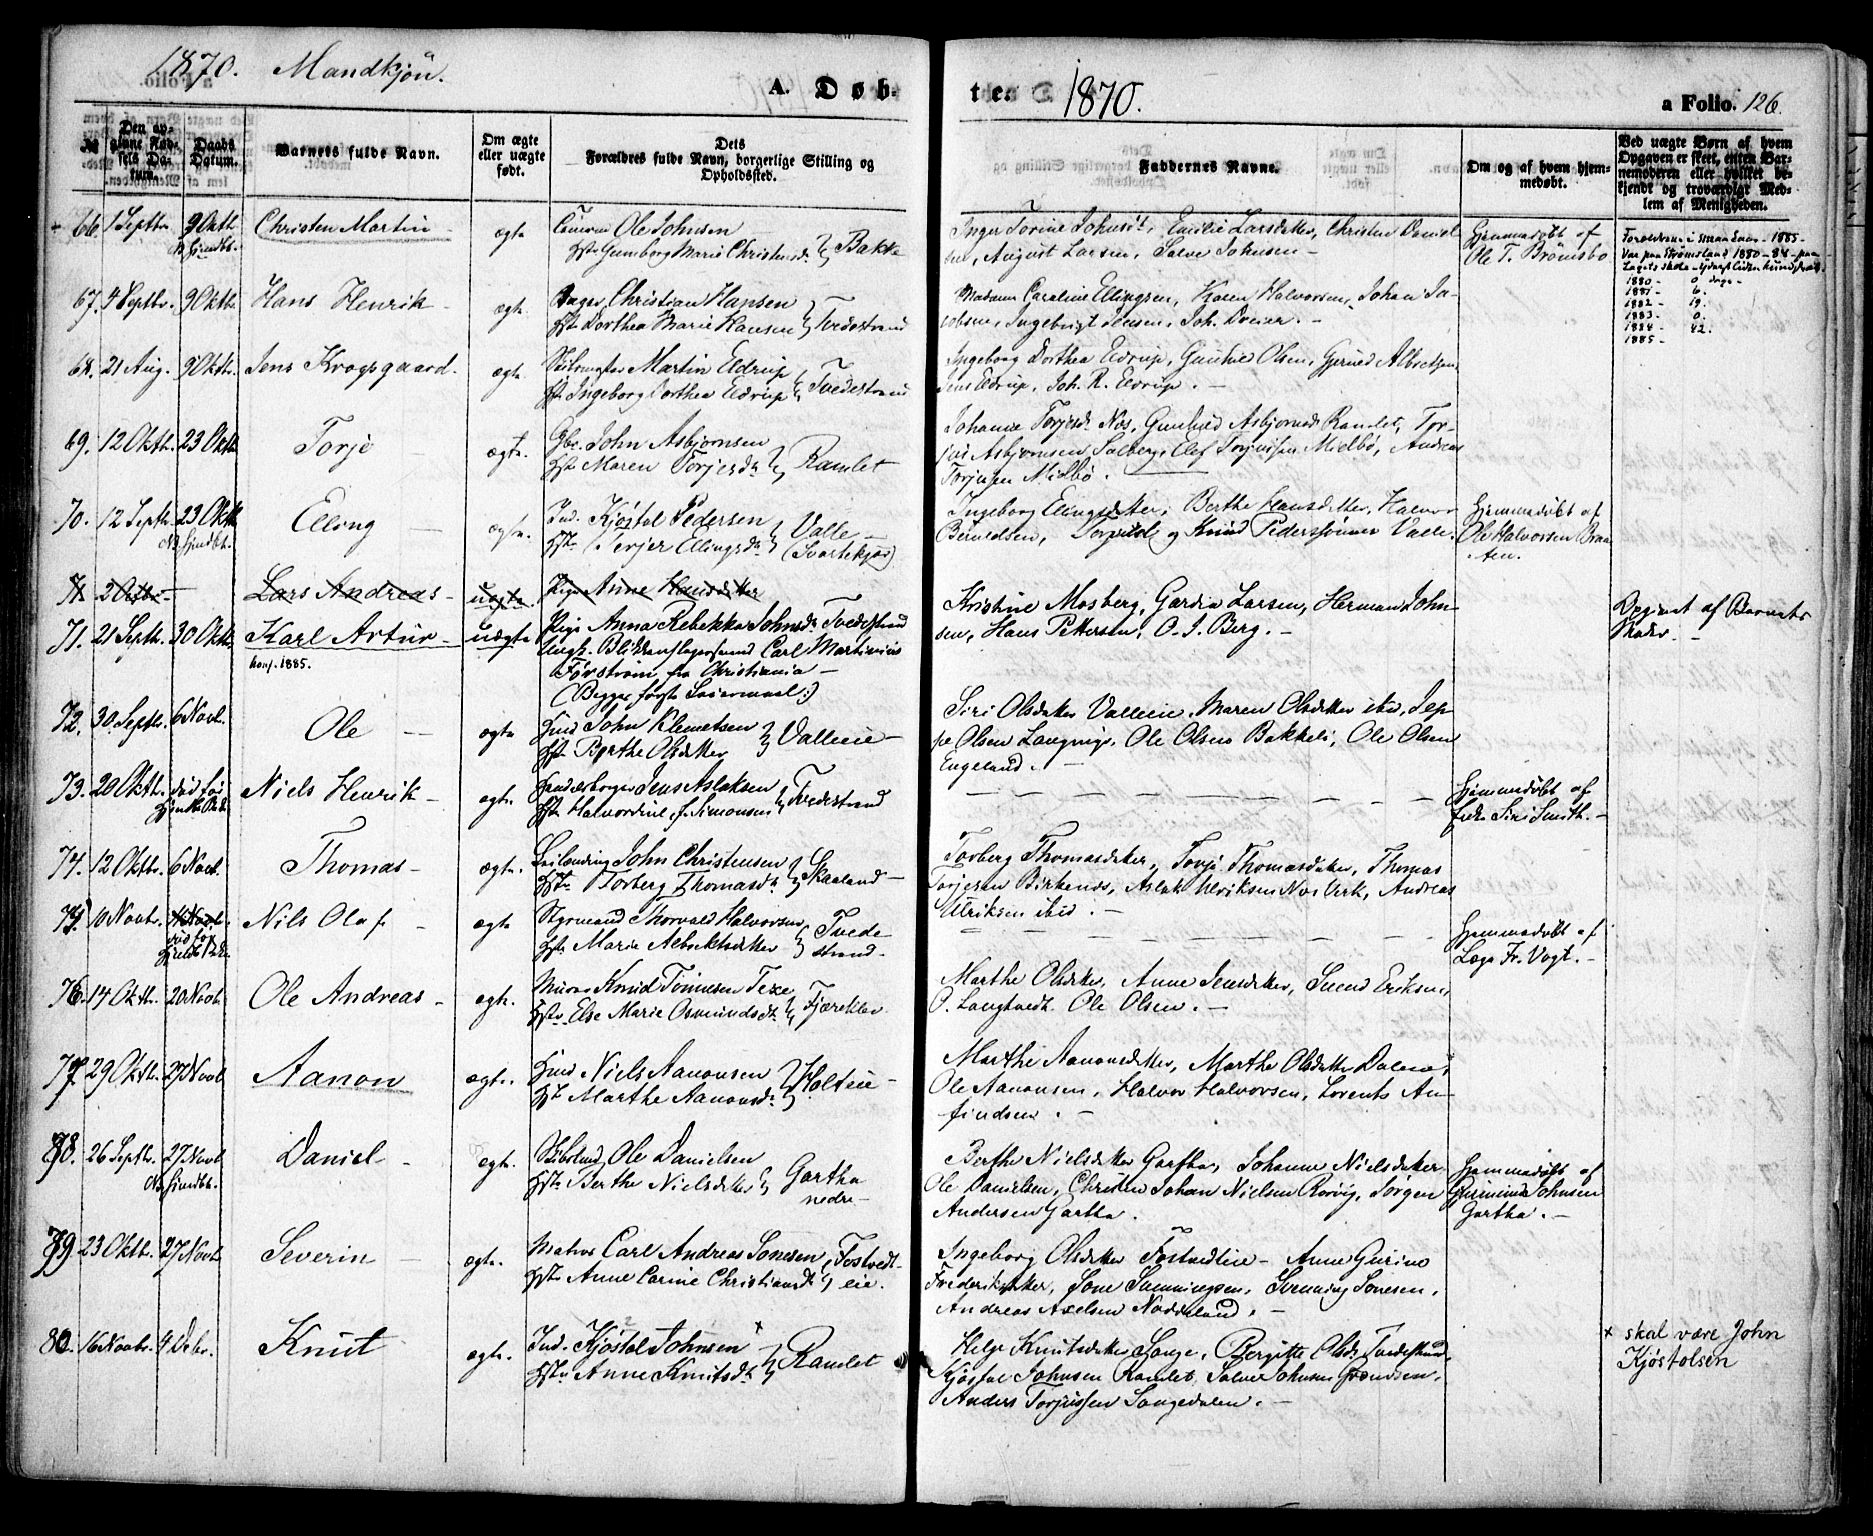 1870. Mandkjøn.
A. Døb-
te.
1870.
a Folio. 126.
No
Den an-
givne Fød-
sels Da-
tum.
Daabs
Datum.
Barnets fulde Navn.
Om ægte
eller uægte
født.
Dets
Forældres fulde Navn, borgerlige Stilling og
Opholdssted.
Faddernes Navne.
Om og af hvem hjem-
medøbt.
Ved uægte Børn af hvem
Opgaven er skeet, enten Bar-
nemoderen eller hvilket be-
kjendt og troværdigt Med-
lem af Menigheden.
66. 1 Septbr. 9 Oktb. Christen Martin - ægte Ole Johnsen
Gunborg Marie Christensdr. Bakke
Inger Torine Johnsdt., Emilie Larsdatter, Christen Daniel-
sen, August Larsen, Salve Johnsen -
Hjemmedøbt af
Ole T. Brømsbo
1880 - 0
1881 - 6.
1882 - 19.
1883 - 0.
1884 - 42.
1885 -
67. 4 Septbr. 9 Oktb. Hans Henrik - ægte Bager Christian Hansen
Hst. Dorthea Marie Hansen Tvedestrand
Madame Caroline Ellingsen, Karen Halvorsen, Johan Ja-
cobsen, Ingebrigt Jensen, Joh. Dreier. -
68. 21 Aug. 9 Oktb. Jens Krogsgaard. ægte Martin Eldrup
Hst. Ingeborg Dorthea Eldrup Tvedestrand
Ingeborg Dorthea Eldrup, Gunhild Olsen, Gjerund Albretsen,
Jens Eldrup, Joh. R. Eldrup. -
69. 12 Oktb. 23 Oktb. Torje ægte. Gbr. John Asbjørnsen
Hst. Maren Torjesdr. Ramlet
Johanne Torjesdr. Næs, Gunhild Asbjørnsdr. Ramlet, Tor-
jus Asbjørnsen Solberg, Elef Torjussen Mielbø, Andreas
Torjussen Mielbø.
70. 12 Septbr. 23 Oktb. Elling - ægte. Ind. Kjøstol Pedersen
Hst. Terjer Ellingsdr. Valle - (Svartekjær)
Ingeborg Ellingsdatter, Berthe Hansdatter, Halvor
Beruldsen, og Knud Pederssønner Valle.
Hjemmedøbt af
Ole Halvorsen Braa-
ten.
71. 2 Octbr. - Lars Andreas - uægte. Pige Anne Hansdatter
71. 21 Septb. 30 Oktb. Karl Artur - uægte Pige Anna Rebekka Johnsdr. Tvedestrand
konf. 1885.
Ungk. Blikkenslagersvend Carl Martinius
Førstrøm, fra Christiania -
(Begges første Leiermaal:)
Kristine Mosberg, Gardia Larsen, Herman John-
sen, Hans Pettersen, O. J. Berg. -
Opgivet af Barnets
Moder. -
72. 30. Septb. 6 Novb. Ole - ægte Huusm. John Klemetsen
Hst. Berthe Olsdatter Valleeie -
Siri Olsdatter Valleeie, Maren Olsdatter ibid, Jep-
pe Olsen Langmyr, Ole Olsen Bakkeli, Ole Olsen
Engeland. -
73. 20 Oktb. død før Niels Henrik - ægte. Handelsborger Jens Aslaksen
Hst. Halvordine f. Simonsen Tvedestrand
Hjemmedøbt af
Siri Smith. -
74. 12 Oktb. 6 Novb. Thomas - ægte. John Christensen
Hst. Torberg Thomasdr. Skaaland -
Torberg Thomasdatter, Torje Thomasdatter, Thomas
Torjesen Birkenæs, Aslak Ulriksen Næs Verk, Andreas
Ulriksen ibid. -
75. 10 Novbr. Nils Olaf - ægte Styrmand Thorvald Halvorsen
Hst. Marie Albrektsdatter Tvede-
strand.
Hjemmedøbt af
Læge Fr. Vogt. -
76. 14 Oktb. 20 Novb. Ole Andreas - ægte. Murer Knud Tomesen Texe
Hst. Else Marie Osmundsdr. Fjæreklev
Marthe Olsdatter, Anne Jensdatter, Svend Eriksen,
O. Langtvedt. Ole Olsen. -
77. 29 Oktb. 27 Novb. Aanon ægte. Huusm. Niels Aanonsen
Hst. Marthe Aanonsdr. Holteie -
Marthe Aanonsdatter, Marthe Olsdatter Dalene,
Ole Aanonsen, Halvor Halvorsen, Lorents An-
findsen. -
78. 26 Septbr. 27 Novb. Daniel - ægte. Ole Danielsen
Hst. Berthe Nielsdatter Gartha
nedre -
Berthe Nielsdatter Gartha, Johanne Nielsdatter
Ole Danielsen, Christen Johan Nielsen Rørvig, Jørgen
Andersen Gartha.
Hjemmedøbt af
Johnsen
Gartha. -
79. 23 Oktb. 27 Novb. Severin - ægte. Matros Carl Andreas Sonesen, Fostvedt-
Hst. Anne Carine Christiansdr. eie.
Ingeborg Olsdatter Fostvedteie - Anne Gurine
Frederiksdatter, Sone Sunningsen, Svenning Sonesen,
Andreas Axelsen Nødeland. -
80. 16 Novbr. 4 Debr. Knut ægte. Ind. Kjøstol Johnsen x
Hst. Anne Knutsdr. Ramlet
Helge Knutsdatter Songe, Bergitte Olsdr. Tvedestrand,
Kjøstol Johnsen Ramlet, Salve Johnsen
Anders Torjussen Songedalen. -
x skal være John
Kjøstolsen